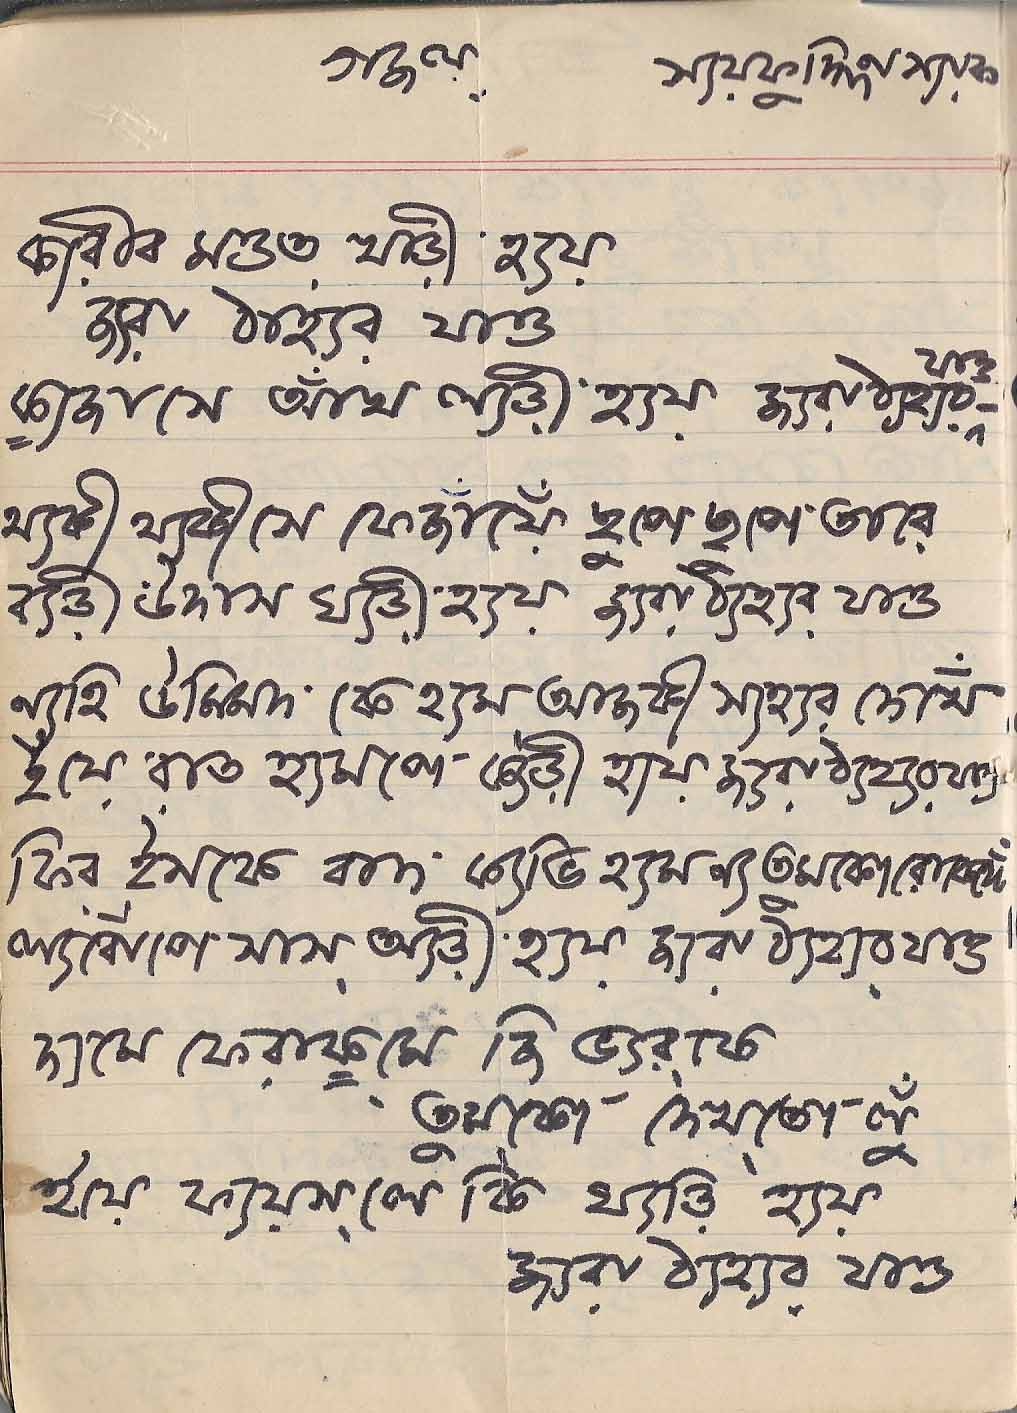 গজল সয়ফুদ্দিন স্যফ
ক্যরীব মওত্ খ্যড়ী হ্যয়
জ্যরা ঠ্যহ্যর্ যাও
ক্যজাসে আঁখ ল্যড়ী হ্যয় জ্যরা ঠ্যহ্যর্ যাও
থ্যকী থ্যকীসে ফেজাঁয়েঁ ছুপে ছুপে তারে
ব্যড়ী উদাস ঘ্যড়ী হ্যয় জ্যরা ঠ্যহ্যর যাও
ন্যহি উমিদ কে হ্যম আজকী স্যহ্যর দেখেঁ
ইয়ে রাত হ্যমপে ক্যড়ী হ্যয় জ্যরা ঠ্যহ্যর যাও
ফির ইসকে বাদ ক্যভি হ্যম ন্য তুমকো রোকেঙ্গেঁ
ল্যবোঁপে সাস্ অ্যড়ী হ্যয় জ্যরা ঠ্যহ্যর যাও
দ্যমে ফেরাক্বমে জি ভ্যর্‌কে
তুমকো দেখ্‌তো লুঁ
ইয়ে ফ্যয়স্‌লে কি ঘ্যড়ি হ্যয়
জ্যরা ঠ্যহ্যর্ যাও